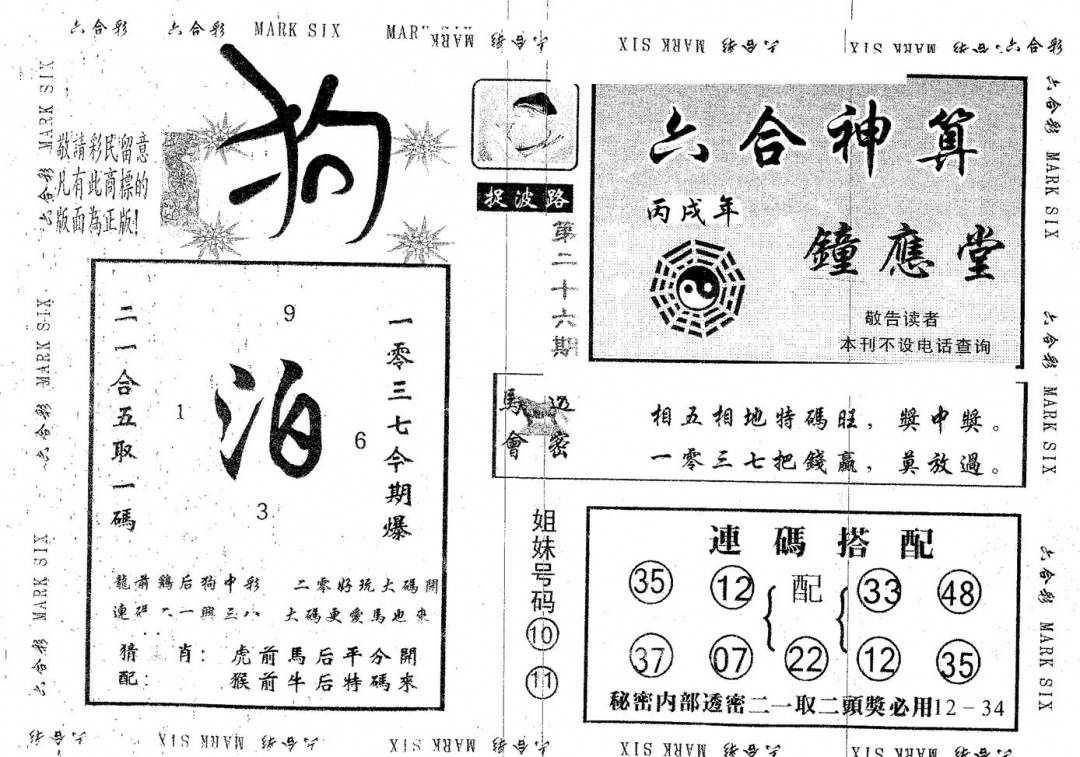 六合彩 六合彩 MARK SIX MARK SIX 六合彩 MARK SIX 六合彩 MARK SIX 六合彩
狗
敬請彩民留意
凡有此商標的
版面為正版!
捉波路
第二十六期
六合神算
丙戌年
鐘應堂
敬告读者
本刊不设电话查询
二一合五取一碼
9
1
泊
6
3
一零三七今期爆
龍前鷄后狗中彩 二零好玩大碼開
大碼更愛馬也來
猜 肖: 虎前馬后平分開
配: 猴前牛后特碼來
馬會
透密
相五相地特碼旺,獎中獎。
一零三七把錢贏,莫放過。
姐妹号码
10
11
連碼搭配
35 12 配 33 48
37 07 22 12 35
秘密内部透密二一取二頭獎必用12-34
六合彩 MARK SIX 六合彩 MARK SIX 六合彩 MARK SIX
六合彩 MARK SIX 六合彩 MARK SIX 六合彩 MARK SIX
六合彩 MARK SIX 六合彩 MARK SIX 六合彩 MARK SIX 六合彩 MARK SIX 六合彩